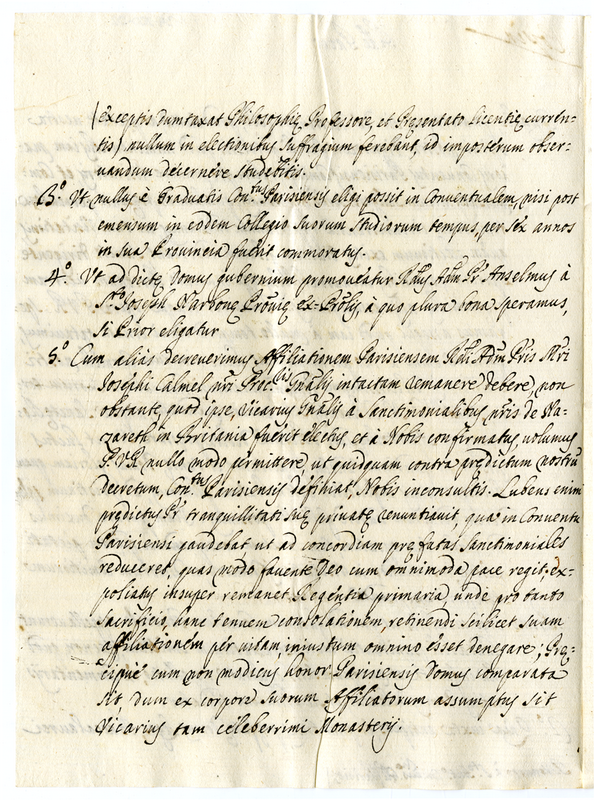 (exceptis dumtaxat Philosophię Professore, et Pręsentato licentię curren-
tis) nullum in electionibus suffragium ferebant, id imposterum obser-
uandum decernere studebitis.
3.º Vt nullus è Graduatis Con.tus Parisiensis eligi possit in Conventualem, nisi post
emensum in eodem Collegio suorum studiorum tempus, per sex annos
in sua Prouincia fuerit commoratus.
4.º Vt ad dictę Domus gubernium promoueatur R̃dus Adm̃ Pr Anselmus à
S.to Joseph Narbonę Prouię ex-Prõlis, à quo plura bona speramus,
si Prior eligatur
5.º Cum alias decreuerimus Affiliationem Parisiensem R̃di Adm̃ Pris Mri
Josephi Calmel nr̃i Proc.lis Gñalis intactam remanere debere, non
obstante, quod ipse, Vicarius Gñalis à Sanctimonialibus nr̃is de Na-
zareth in Britania fuerit electus, et à Nobis confirmatus, volumus
P. V. R. nullo modo permittere, ut quidquam contra prędictum nostrũ
decretum, Con.tus Parisiensis definiat, Nobis inconsultis. Lubens enim
prędictus Pr tranquillitati suę priuatę renuntiauit, qua in Conventu
Parisiensi gaudebat ut ad concordiam pręfatas Sanctimoniales
reduceret, quas modo fauente Deo cum omnimoda pace regit; ex-
poliatus insuper remanet Regentia primaria unde pro tanto
sacrificio, hanc tenuem consolationem, retinendi scilicet suam
affiliationem per vitam, iniustum omnino esset denegare; Pręz-
cipuè cum non modicus honor Parisiensis Domus comparata
sit, dum ex corpore suorum Affiliatorum assumptus sit
Vicarius tam celeberrimi Monasterij.